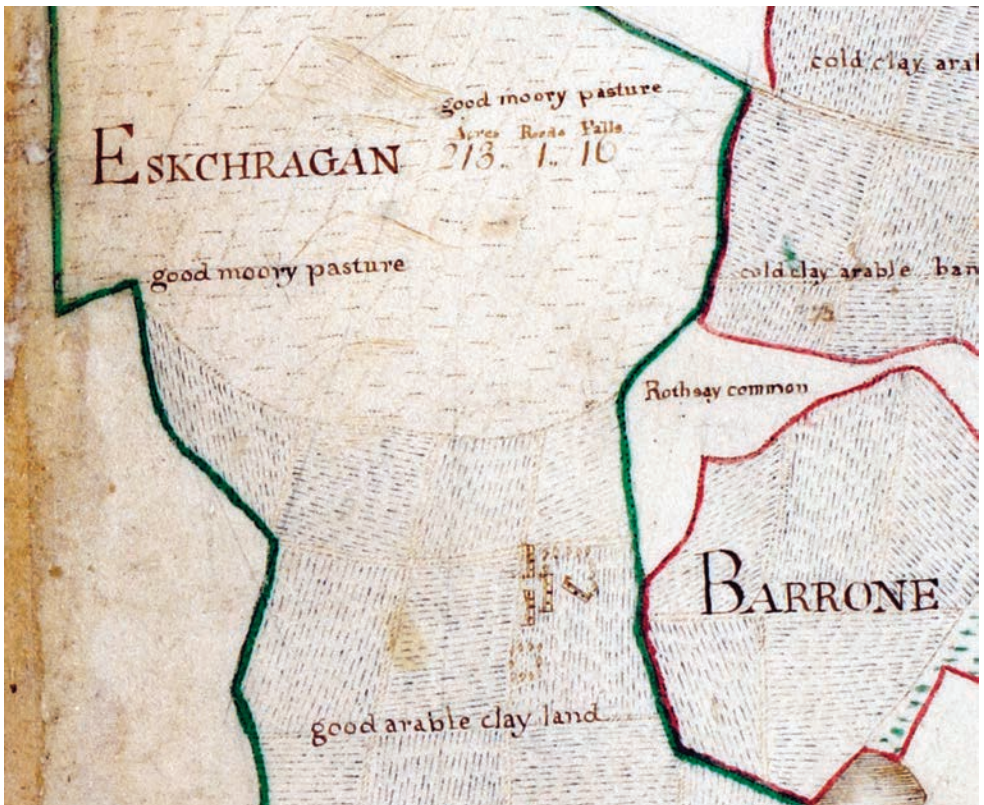 cold clay arab
good moory pasture
Acres Roods Falls
213. 1. 16
ESKCHRAGAN
good moory pasture
cold clay arable ban
Rothsay common
BARRONE
good arable clay land